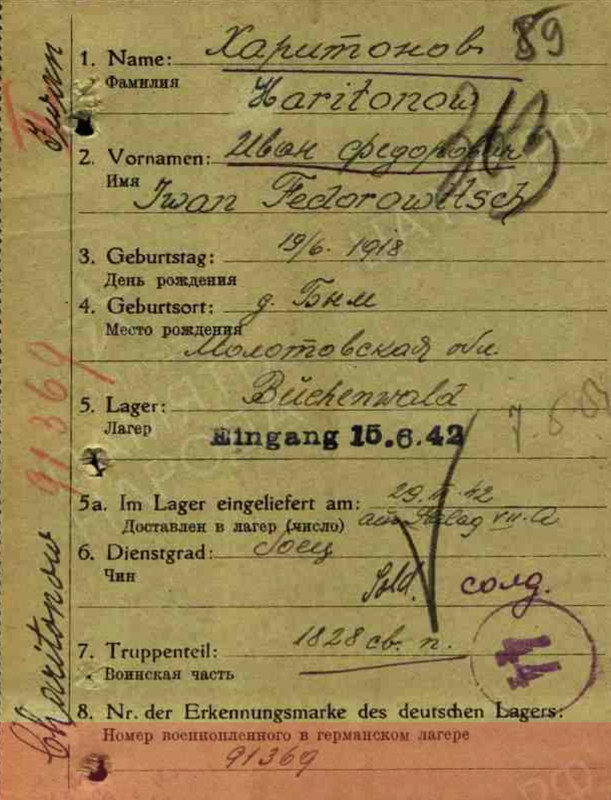 1. Name: Харитонов 89
Фамилия
Haritonow
2. Vornamen: Иван федорович
Имя
Iwan Fedorowitsch
3. Geburtstag: 19/6. 1918
День рождения
4. Geburtsort: д. Бым
Место рождения
Молотовская обл.
5. Lager: Buchenwald
Лагерь
Eingang 15.6.42
5a. Im Lager eingeliefert am:
Доставлен в лагерь (число) aus Stalag VII.A
6. Dienstgrad: боец
Чин
Sold. солд.
7. Truppenteil: 1828 св. п.
Воинская часть
44
8. Nr. der Erkennungsmarke des deutschen Lagers:
Номер военнопленного в германском лагере
91369
Charitonow 91369 Iwan